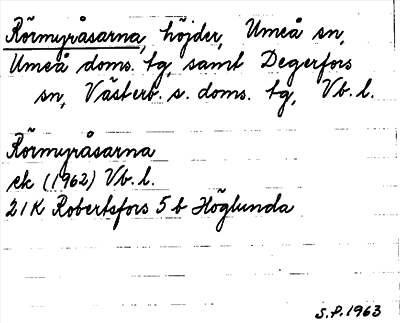 Rörmyråsarna, höjder, Umeå sn,
Umeå doms. tg, samt Degerfors
sn, Västerb. s. doms. tg, Vb. l.
Rörmyråsarna
ek (1962) Vb. l.
21K Robertsfors 5 b Höglunda
S.P. 1963